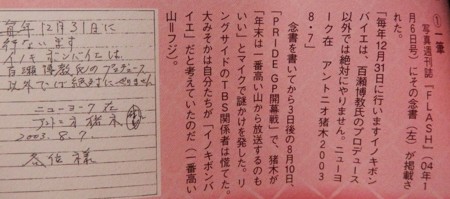 ①一筆
写真週刊誌『FLASH』(04年1
月6日号)にその念書(左)が掲載さ
れた。
「毎年12月31日に行いますイノキボン
バイエは、百瀬博教氏のプロデュース
以外では絶対にやりません。ニューヨ
ーク在 アントニオ猪木2003
・8・7」
念書を書いてから3日後の8月10日、
「PRIDE GP開幕戦」で、猪木が
「年末は一番高い山から放送するのも
いい」とマイクで謎かけを発した。リ
ングサイドのTBS関係者は慌てた。
大みそかは自分たちが「イノキボンバ
イエ」だと考えていたのだ(一番高い
山=フジ)。
毎年12月31日に
行ないます
イノキボンバイエは、
百瀬博教氏のプロデュース
以外では絶対にやりません
ニューヨーク在
アントニオ猪木
2003.8.7.
各位様